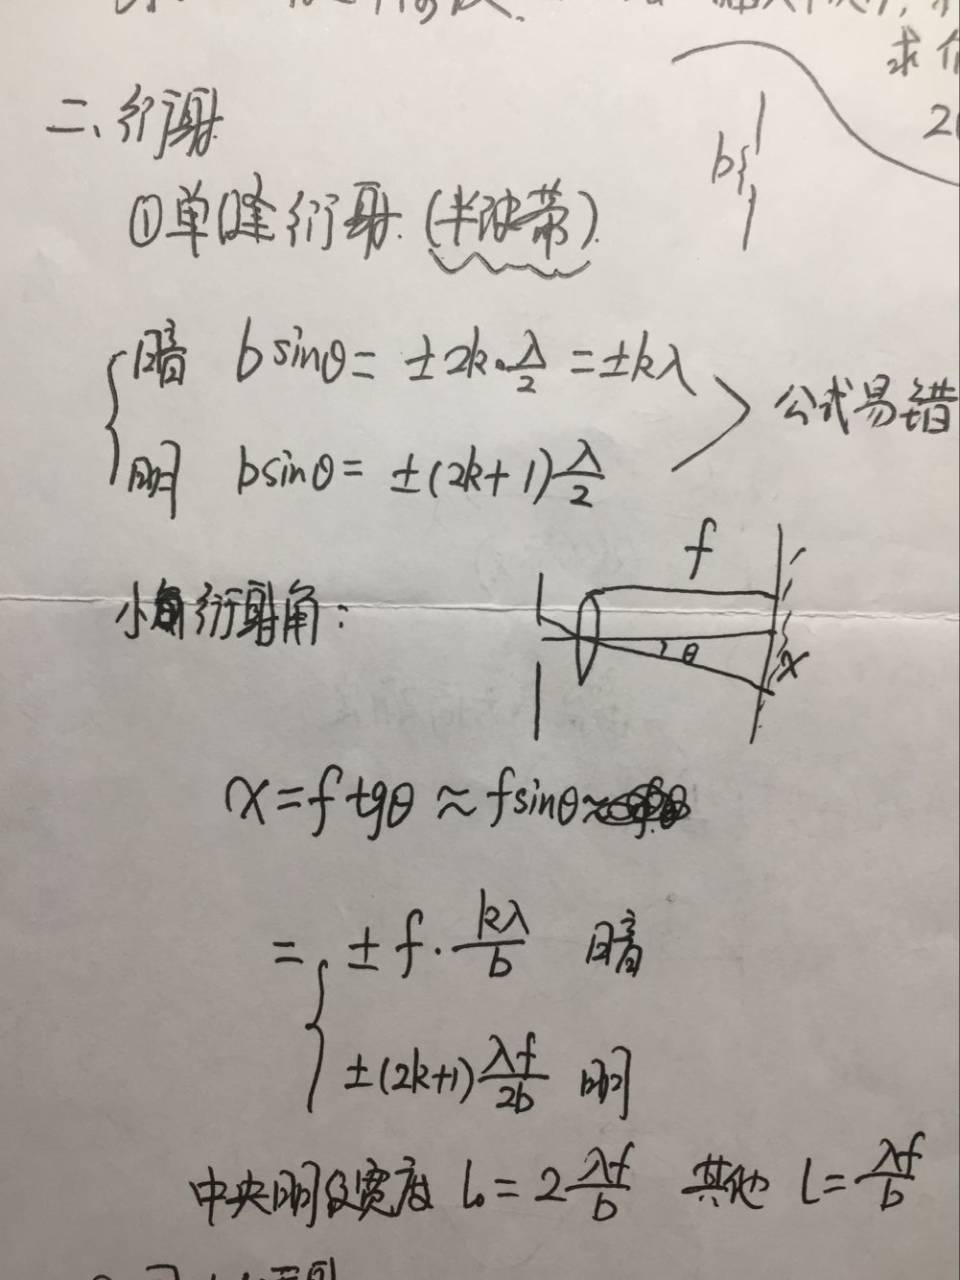 求
二、衍射
b{
①单缝衍射.(半波带).
暗 bsinθ= ±2k·λ/2 =±kλ
公式易错
明 bsinθ= ±(2k+1)λ/2
f
小衍射角:
θ
x
x=f tgθ≈fsinθ≈
= ±f·kλ/b 暗
±(2k+1)λf/2b 明
中央明纹宽度 l₀=2λf/b 其他 l=λf/b